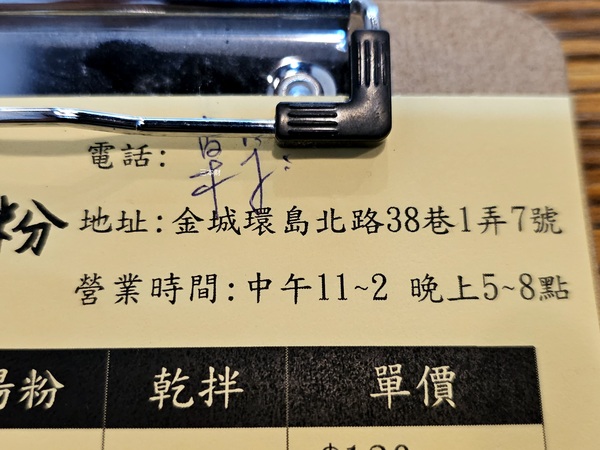 電話:
粉 地址:金城環島北路38巷1弄7號
營業時間:中午11~2 晚上5~8點
湯粉 乾拌 單價